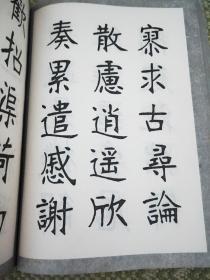 寡求古尋論
散慮逍遥欣
奏累遣慼謝
歡招渠荷